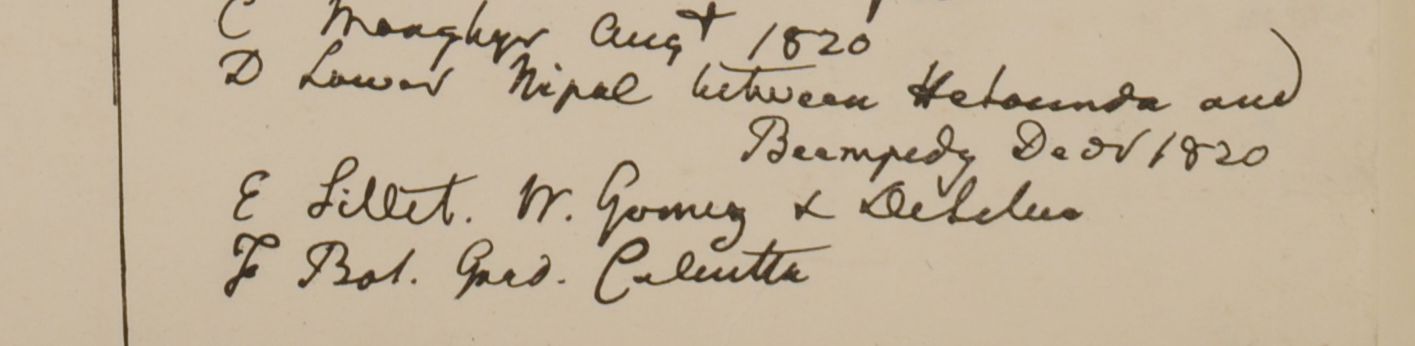 C Monghyr Augt 1820
D Lower Nipal between Hetounda and
Beempedy Decr 1820
E Sillet. W. Gomez & DeSilva
F Bot. Gard. Calcutta